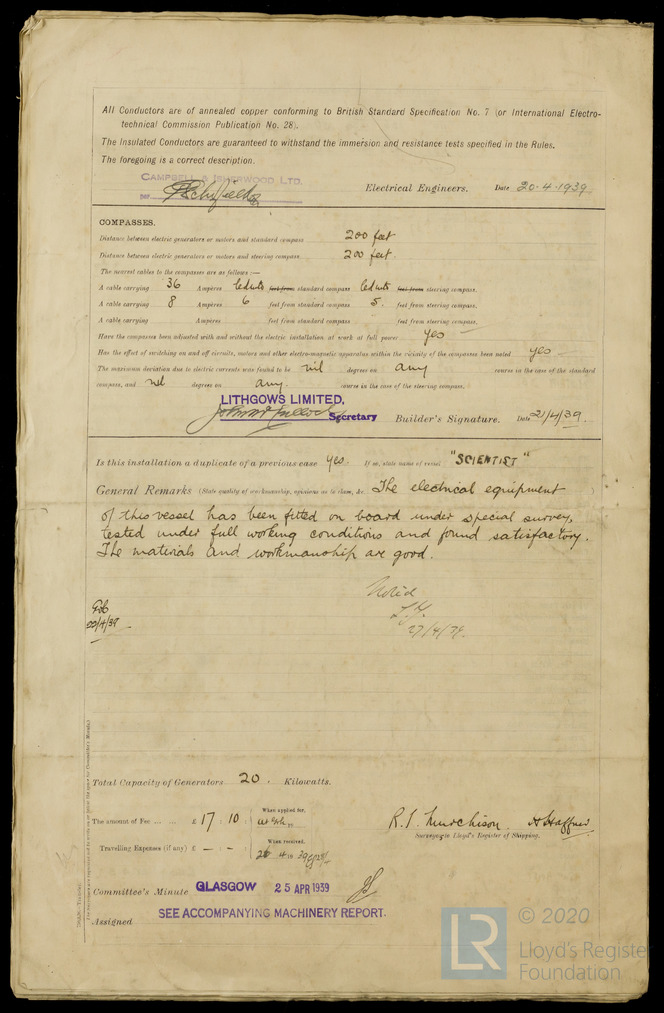 All Conductors are of annealed copper conforming to British Standard Specification No. 7 (or International Electro-
technical Commission Publication No. 28).
The Insulated Conductors are guaranteed to withstand the immersion and resistance tests specified in the Rules.
The foregoing is a correct description.
CAMPBELL & ISHERWOOD LTD.
per Electrical Engineers. Date 20·4·1939
COMPASSES.
Distance between electric generators or motors and standard compass 200 feet
Distance between electric generators or motors and steering compass 200 feet.
The nearest cables to the compasses are as follows:—
A cable carrying 36 Amperes feet from standard compass feet from steering compass.
A cable carrying 8 Amperes 6 feet from standard compass 5. feet from steering compass.
A cable carrying Amperes feet from standard compass feet from steering compass.
Have the compasses been adjusted with and without the electric installation at work at full power yes
Has the effect of switching on and off circuits, motors and other electro-magnetic apparatus within the vicinity of the compasses been noted yes –
The maximum deviation due to electric currents was found to be nil degrees on any course in the case of the standard
compass, and nil degrees on any. course in the case of the steering compass.
LITHGOWS LIMITED,
Secretary Builder's Signature. Date 21/4/39.
Is this installation a duplicate of a previous case yes. If so, state name of vessel "SCIENTIST"
General Remarks (State quality of workmanship, opinions as to claim, &c. The electrical equipment )
of this vessel has been fitted on board under special survey,
tested under full working conditions and found satisfactory.
The materials and workmanship are good.
Noted
27/4/39.
22/4/39
Total Capacity of Generators 20. Kilowatts.
The amount of Fee ... ... £ 17 : 10 : When applied for,
R. J. Murchison.
Surveyors to Lloyd's Register of Shipping.
Travelling Expenses (if any) £ – : – : When received,
Committee's Minute GLASGOW 25 APR 1939
Assigned SEE ACCOMPANYING MACHINERY REPORT.
LR © 2020
Lloyd's Register
Foundation